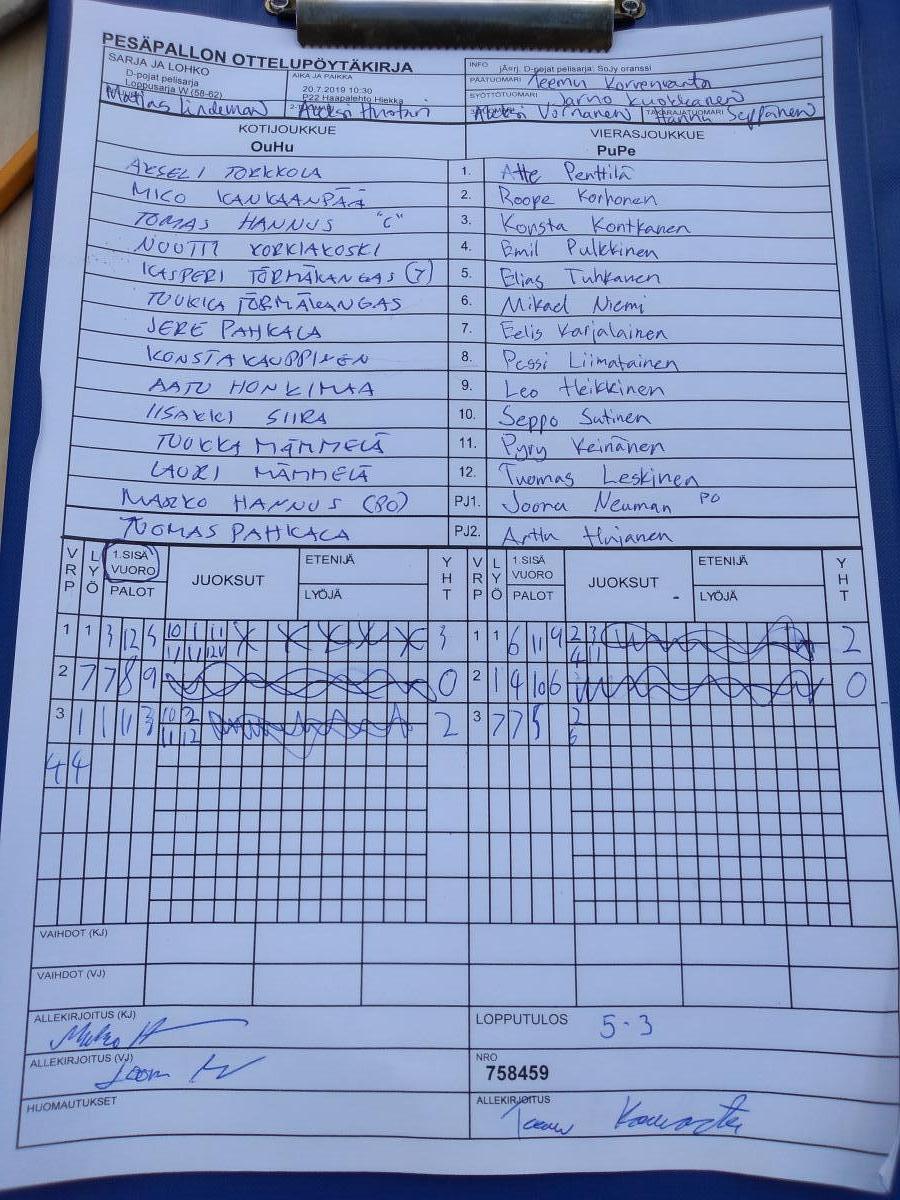 PESÄPALLON OTTELUPÖYTÄKIRJA
SARJA JA LOHKO
D-pojat pelisarja
Loppusarja W (58-62)
AIKA JA PAIKKA
20.7.2019 10:30
P22 Haapalehto Hiekka
INFO jÄerj. D-pojat pelisarja: SoJy oranssi
PÄÄTUOMARI Teemu Korvenranta
SYÖTTÖTUOMARI Jarno Kuokkanen
Matias Lindeman
Aleksi Huotari
Aleksi Vornanen
TAKARAJATUOMARI Hannu Seppänen
KOTIJOUKKUE
OuHu
VIERASJOUKKUE
PuPe
AKSELI TORKKOLA 1. Atte Penttilä
MICO KANKAANPÄÄ 2. Roope Korhonen
TOMAS HANNUS "C" 3. Konsta Kontkanen
NUUTTI KORKIAKOSKI 4. Emil Pulkkinen
KASPERI TÖRMÄKANGAS (7) 5. Elias Tuhkanen
TUUKKA TÖRMÄKANGAS 6. Mikael Niemi
JERE PAHKALA 7. Eelis Karjalainen
KONSTA KAUPPINEN 8. Pessi Liimatainen
AATU HONKIMAA 9. Leo Heikkinen
IISAKKI SIIRA 10. Seppo Sutinen
TUUKKA MÄMMELÄ 11. Pyry Keinänen
LAURI MÄMMELÄ 12. Tuomas Leskinen
MARKO HANNUS (PO) PJ1. Joona Neuman PO
TUOMAS PAHKALA PJ2. Arttu Hujanen
VRP LYÖ 1.SISÄ VUORO PALOT JUOKSUT ETENIJÄ LYÖJÄ YHT VRP LYÖ 1.SISÄ VUORO PALOT JUOKSUT ETENIJÄ LYÖJÄ YHT
1 1 3 12 5 10 1 11 3 1 1 6 11 9 2 3 2
4 11
2 7 7 8 9 0 2 1 4 10 6 0
3 1 1 11 3 10 2 2 3 7 7 5 2
11 12 5
4 4
VAIHDOT (KJ)
VAIHDOT (VJ)
ALLEKIRJOITUS (KJ)
LOPPUTULOS 5-3
ALLEKIRJOITUS (VJ)
NRO
758459
HUOMAUTUKSET
ALLEKIRJOITUS